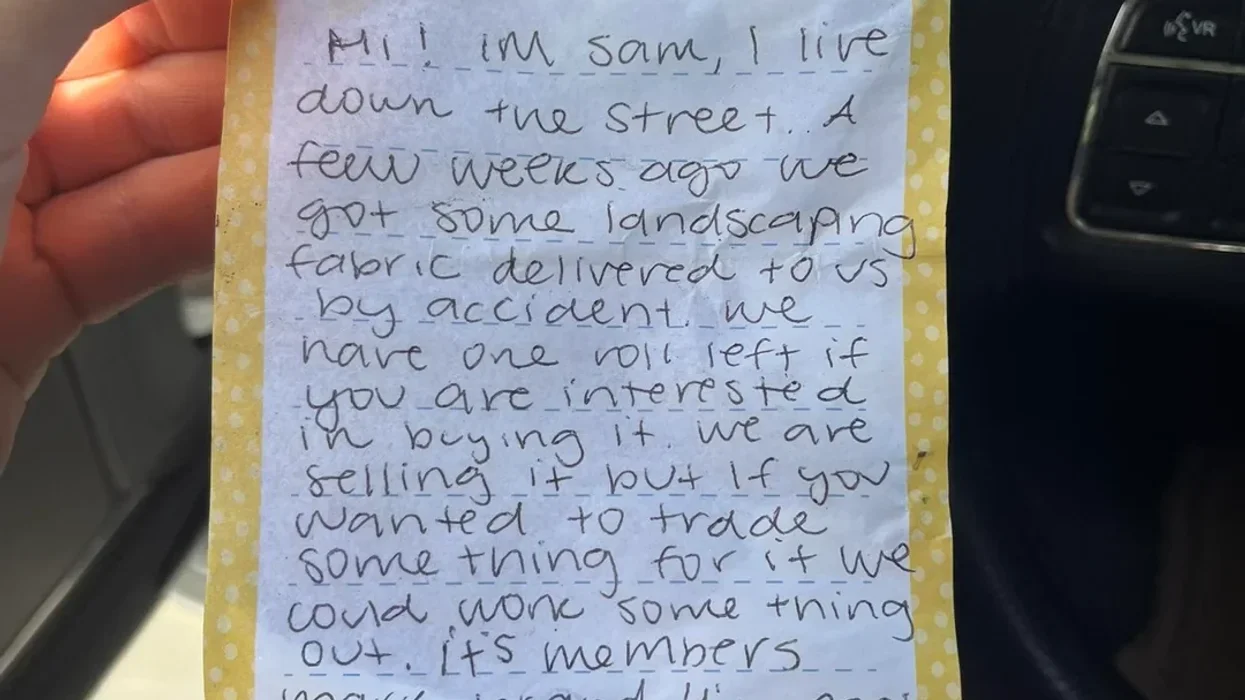 Hi! im sam, I live
down the street. A
few weeks ago we
got some landscaping
fabric delivered to us
by accident. we
have one roll left if
you are interested
in buying it. we are
selling it but if you
wanted to trade
something for it we
could work something
out. it's members
VR